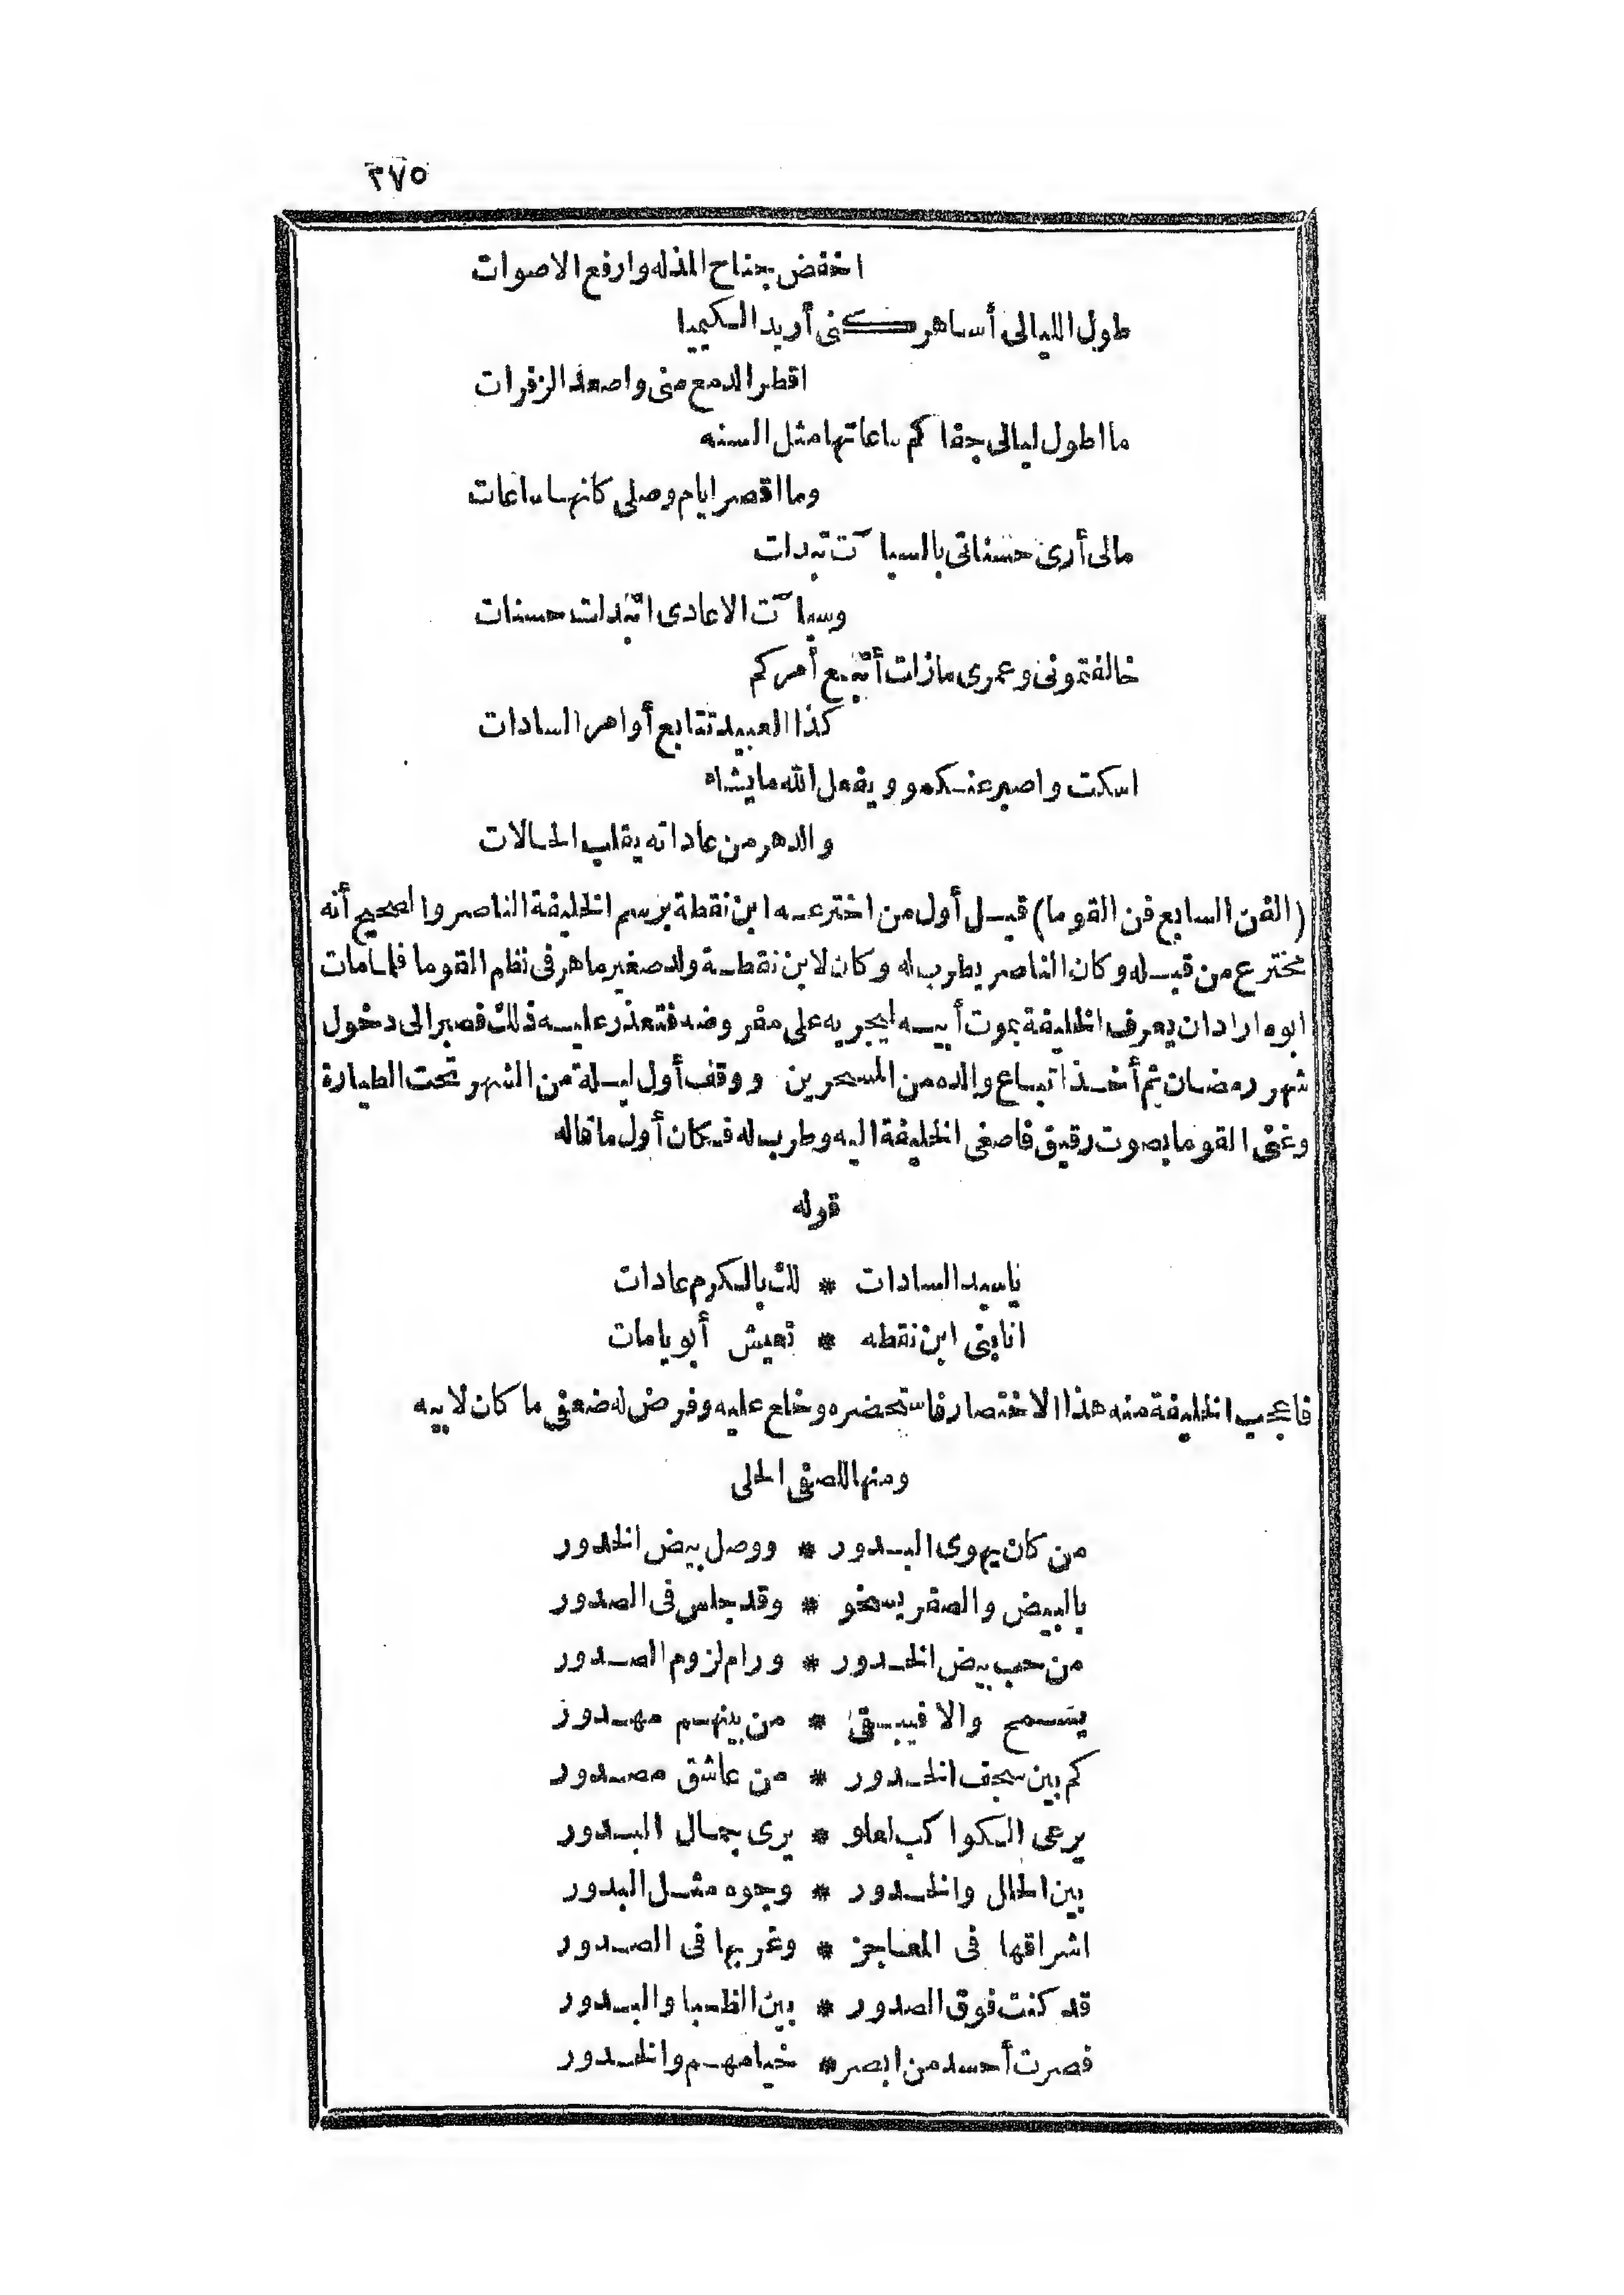 ٢٧٥
اخفض جناح المذله وارفع الاصوات
طول الليالى أساهر كنى أريد الكيميا
اقطر الدمع منى واصعد الزفرات
ما اطول ليالى جفاكم ساعاتها مثل السنه
وما اقصر ايام وصلى كانها ساعات
مالى أرى حسناتى بالسيآت تبدلت
وسيآت الاعادى اتبدلت حسنات
خالفتمونى وعمرى مازلت أتبع أمركم
كذا العبيد تتابع أوامر السادات
اسكت واصبر عنكمو ويفعل الله مايشاه
والدهر من عاداته يقلب الحالات
(الفن السابع فن القوما) قيل أول من اخترعه ابن نقطة برسم الخليفة الناصر والصحيح أنه
مخترع من قبله وكان الناصر يطرب له وكان لابن نقطة ولد صغير ماهر فى نظم القوما فلما مات
ابوه اراد ان يعرف الخليفة بموت أبيه ليجريه على مفروضه فتعذر عليه ذلك فصبر الى دخول
شهر رمضان ثم أخذ اتباع والده من المسحرين ووقف أول ليلة من الشهر تحت الطيارة
وغنى القوما بصوت رقيق فاصغى الخليفة اليه وطرب له فكان أول ماقاله
قوله
ياسيد السادات * لك بالكرم عادات
انا بنى ابن نقطه * تعيش أبويا مات
فاعجب الخليفة منه هذا الاختصار فاستحضره وخلع عليه وفرض له ضعفى ما كان لابيه
ومنها للصفى الحلى
من كان يهوى البدور * ووصل بيض الخدور
بالبيض والصفر يسخو * وقد جلس فى الصدور
من حب بيض الخدور * ورام لزوم الصدور
يسمح والا فيبقى * من بينهم مهدور
كم بين سجف الخدور * من عاشق مصدور
يرعى الكواكب لعلو * يرى جمال البدور
بين الحلل والخدور * وجوه مثل البدور
اشراقها فى المعاجز * وغربها فى الصدور
قد كنت فوق الصدور * بين الظبا والبدور
فصرت أحسد من ابصر * خيامهم والخدور